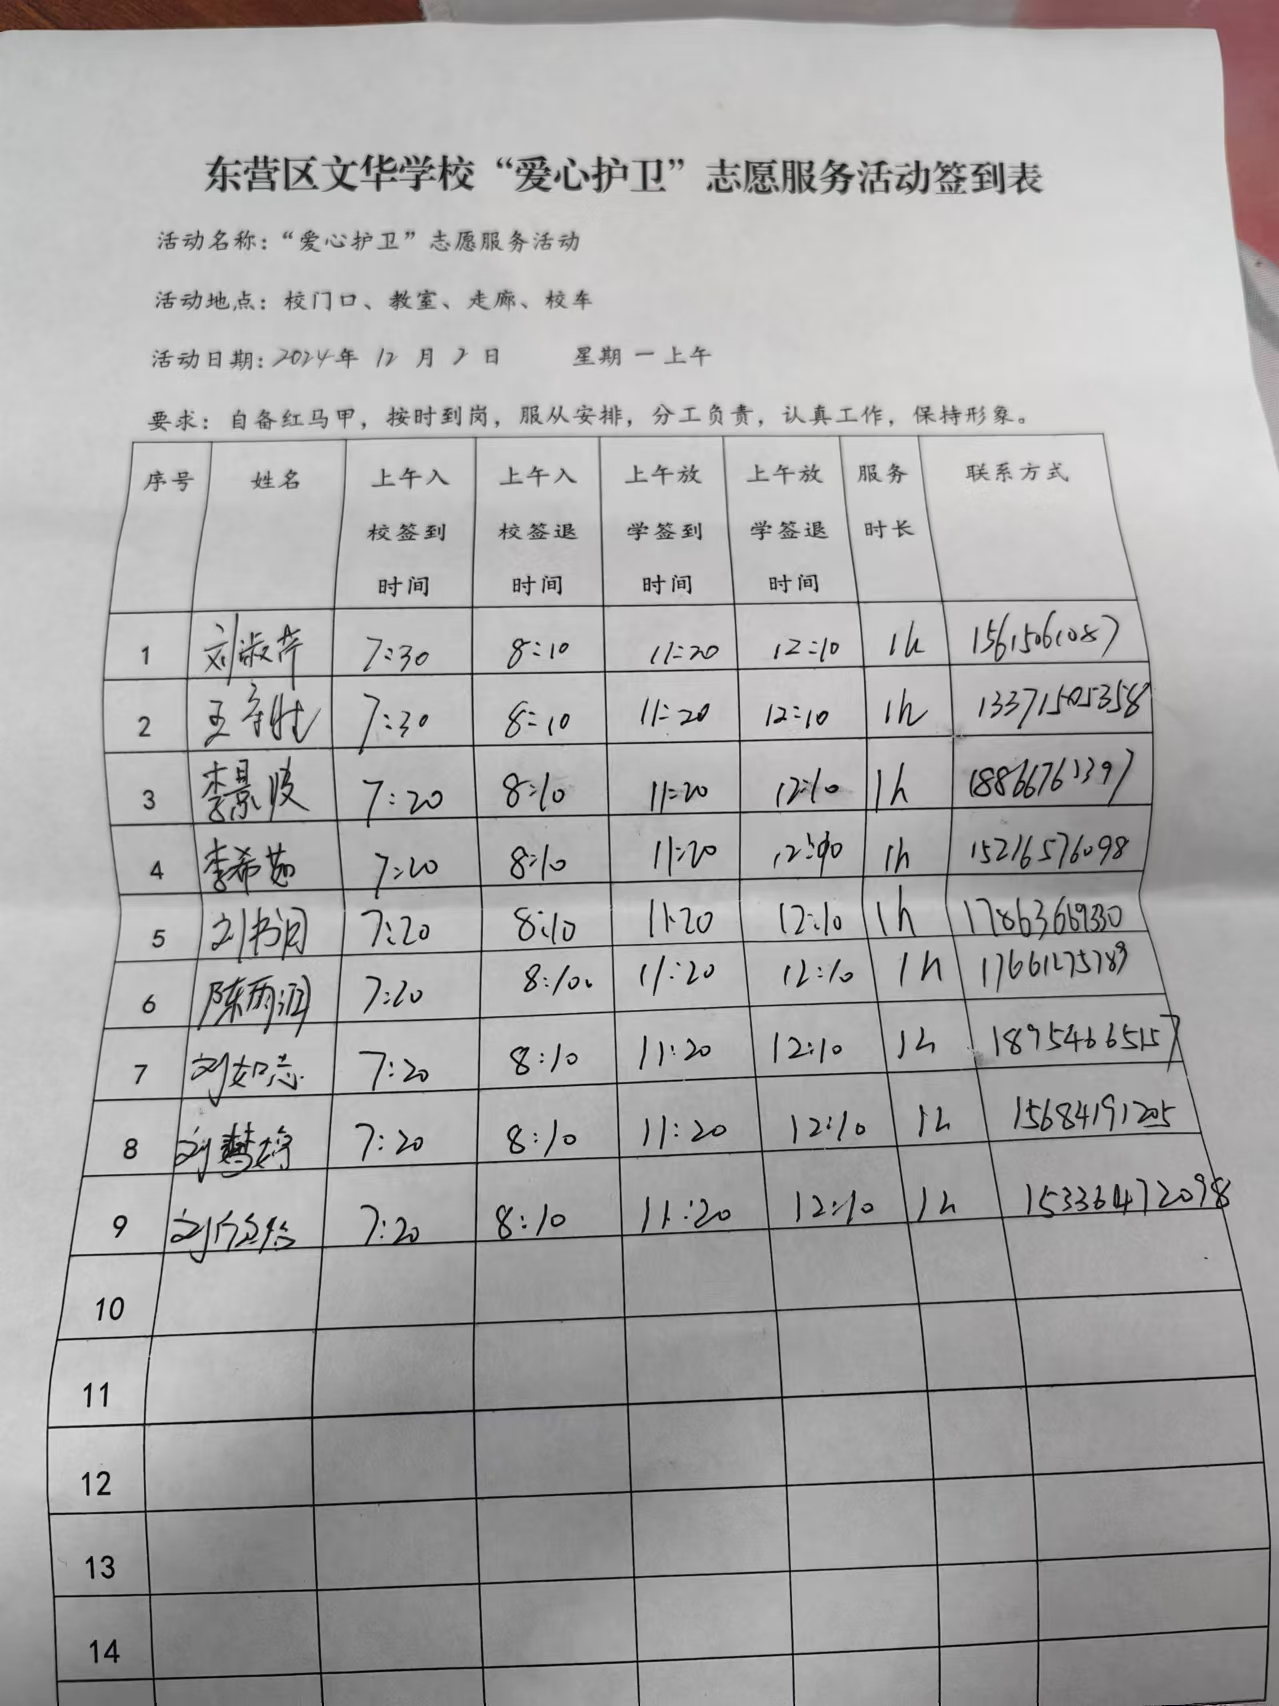 东营区文华学校“爱心护卫”志愿服务活动签到表
活动名称：“爱心护卫”志愿服务活动
活动地点：校门口、教室、走廊、校车
活动日期：2024年 12 月 2 日 星期 一 上午
要求：自备红马甲，按时到岗，服从安排，分工负责，认真工作，保持形象。
序号 姓名 上午入校签到时间 上午入校签退时间 上午放学签到时间 上午放学签退时间 服务时长 联系方式
1 刘淑芹 7:30 8:10 11:20 12:10 1h 15615061087
2 王 7:30 8:10 11:20 12:10 1h 13371505358
3 李景 7:20 8:10 11:20 12:10 1h 18866761397
4 李希茹 7:20 8:10 11:20 12:10 1h 15216576098
5 刘书润 7:20 8:10 11:20 12:10 1h 17863669330
6 陈雨润 7:20 8:10 11:20 12:10 1h
7 刘如志 7:20 8:10 11:20 12:10 1h 18954665157
8 刘慧婷 7:20 8:10 11:20 12:10 1h 15684191205
9 刘 7:20 8:10 11:20 12:10 1h
10
11
12
13
14